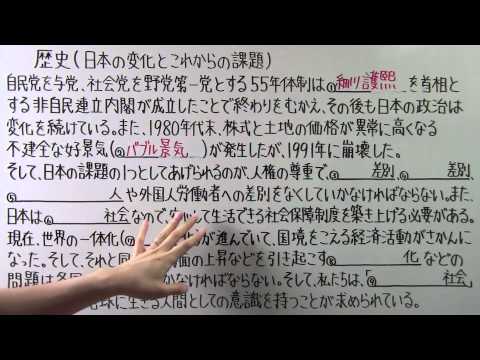 歴史(日本の変化とこれからの課題)
自民党を与党、社会党を野党第一党とする55年体制は 細川護熙 を首相と
する非自民連立内閣が成立したことで終わりをむかえ、その後も日本の政治は
変化を続けている。また、1980年代末、株式と土地の価格が異常に高くなる
不健全な好景気( バブル景気 )が発生したが、1991年に崩壊した。
そして、日本の課題の1つとしてあげられるのが、人権の尊重で、 差別、 差別、
人や外国人労働者への差別をなくしていかなければならない。また、
日本は 社会なので、 して生活できる社会保障制度を築き上げる必要がある。
現在、世界の一体化( 化)が進んでいて、国境をこえる経済活動がさかんに
なった。そして、それと同 面の上昇などを引き起こす 化などの
問題は各国 なければならない。そして、私たちは、「 社会」
球に生きる人間としての意識を持つことが求められている。